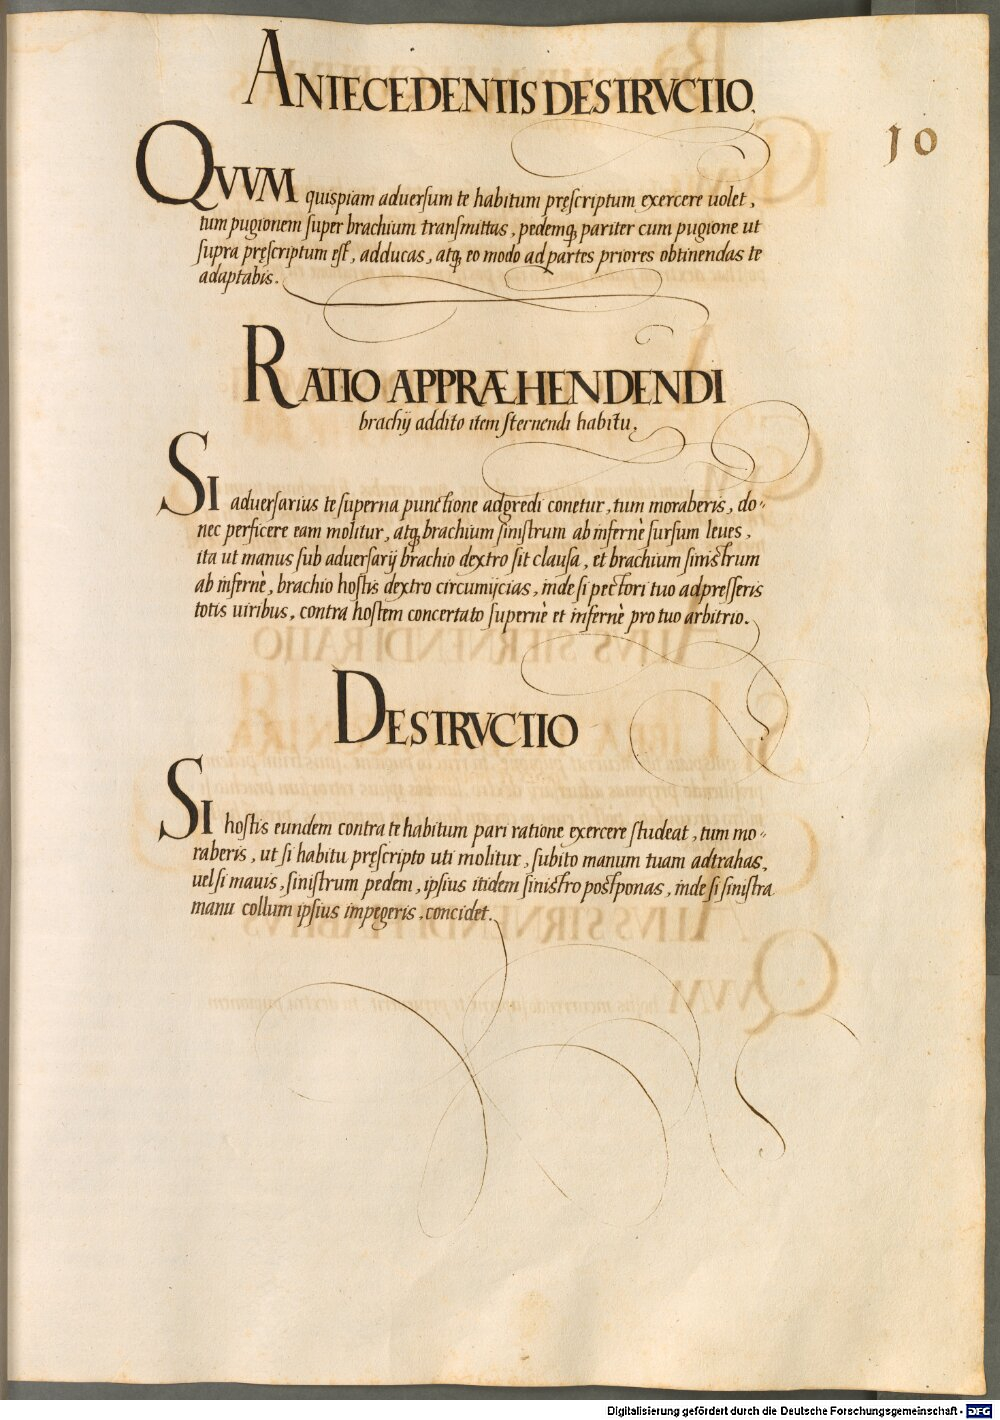 ANTECEDENTIS DESTRVCTIO.
10
QVVM quispiam aduersum te habitum pręscriptum exercere uolet,
tum pugionem super brachium transmittas, pedemq; pariter cum pugione ut
supra pręscriptum est, adducas, atq; eo modo ad partes priores obtinendas te
adaptabis.
RATIO APPRÆHENDENDI
brachij addito item sternendi habitu.
SI aduersarius te superna punctione adgredi conetur, tum moraberis, do-
nec perficere eam molitur, atq; brachium sinistrum ab infernè sursum leues,
ita ut manus sub aduersarij brachio dextro sit clausa, et brachium sinistrum
ab infernè, brachio hostis dextro circumijcias, inde si pectori tuo adpresseris
totis uiribus, contra hostem concertato supernè et infernè pro tuo arbitrio.
DESTRVCTIO
SI hostis eundem contra te habitum pari ratione exercere studeat, tum mo-
raberis, ut si habitu pręscripto uti molitur, subito manum tuam adtrahas,
uel si mauis, sinistrum pedem, ipsius itidem sinistro postponas, inde si sinistra
manu collum ipsius impegeris, concidet.
Digitalisierung gefördert durch die Deutsche Forschungsgemeinschaft - DFG